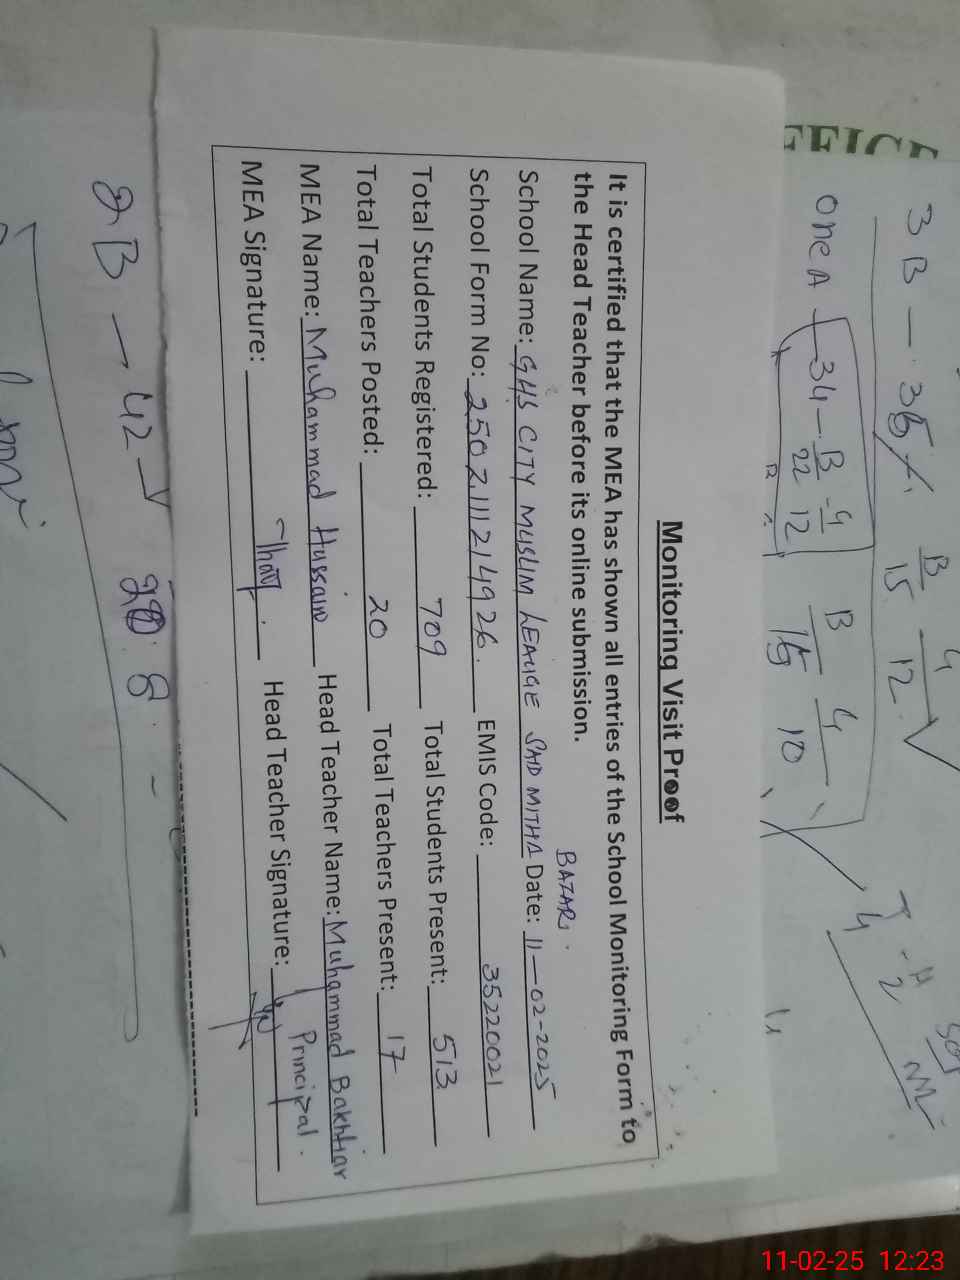 Monitoring Visit Proof
It is certified that the MEA has shown all entries of the School Monitoring Form to
the Head Teacher before its online submission.
BAZAR.
School Name: GHS CITY MUSLIM LEAUGE SAID MITHA Date: 11-02-2025
School Form No: 2502111214926. EMIS Code: 35220021
Total Students Registered: 709 Total Students Present: 513
Total Teachers Posted: 20 Total Teachers Present: 17
MEA Name: Muhammad Hussain Head Teacher Name: Muhammad Bakhtiar
Principal.
MEA Signature: Head Teacher Signature:
3B - 36
B 4
15 12
one A 34 - B 4
22 12
B 4
15 10
2B - 42
8
11-02-25 12:23